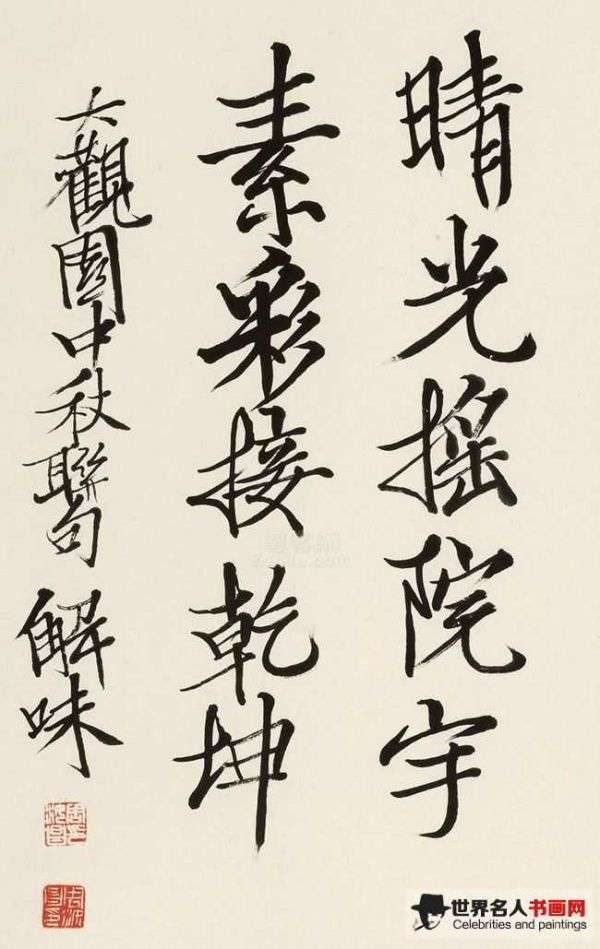 晴光搖院宇
素彩接乾坤
大觀園中秋聯句 解味
世界名人书画网
Celebrities and paintings